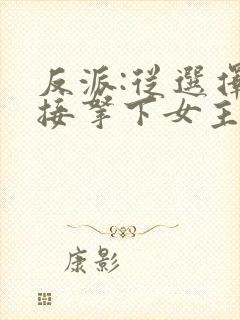 反派:從選擇
接拏下女主
康影